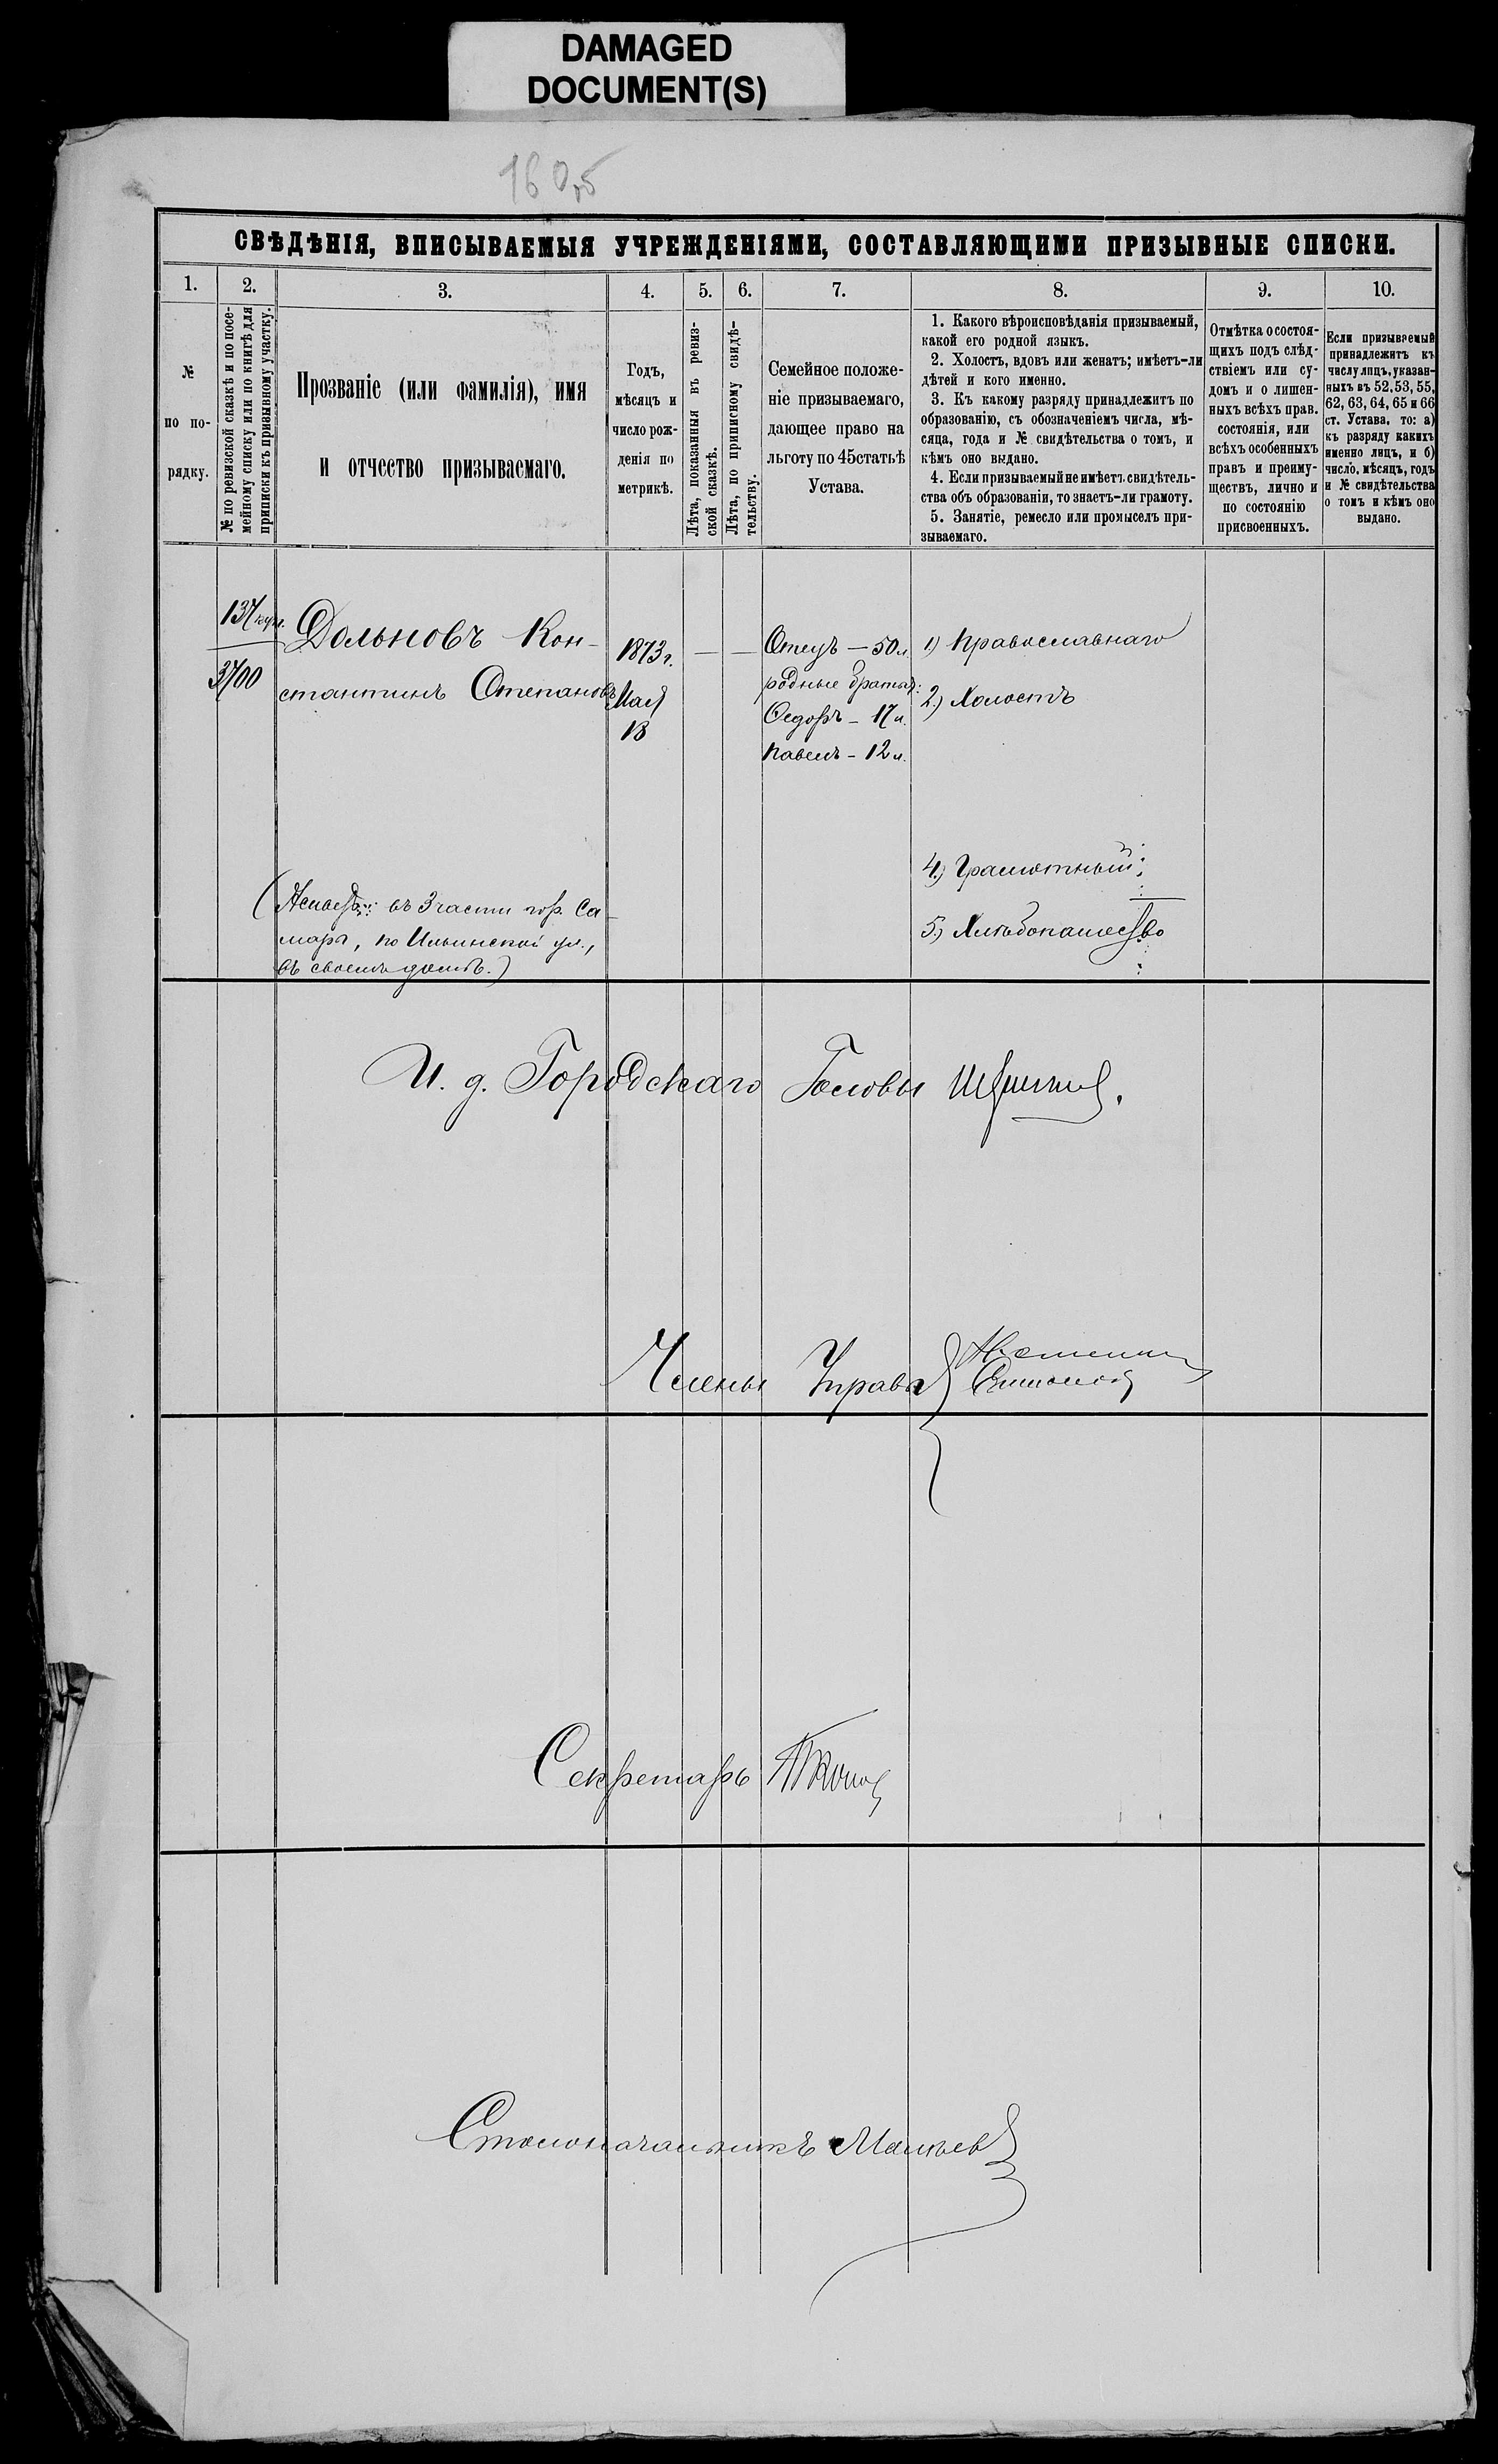 DAMAGED
DOCUMENT(S)
160об
СВѢДѢНІЯ, ВПИСЫВАЕМЫЯ УЧРЕЖДЕНІЯМИ, СОСТАВЛЯЮЩИМИ ПРИЗЫВНЫЕ СПИСКИ.
1.
№
по по-
рядку.
2.
№ по ревизской сказкѣ и по посе-
мейному списку или по книгѣ для
приписки къ призывному участку.
3.
Прозваніе (или фамилія), имя
и отчество призываемаго.
4.
Годъ,
мѣсяцъ и
число рож-
денія по
метрикѣ.
5.
Лѣта, показанныя въ ревиз-
ской сказкѣ.
6.
Лѣта, по приписному свидѣ-
тельству.
7.
Семейное положе-
ніе призываемаго,
дающее право на
льготу по 45 статьѣ
Устава.
8.
1. Какого вѣроисповѣданія призываемый,
какой его родной языкъ.
2. Холостъ, вдовъ или женатъ; имѣетъ-ли
дѣтей и кого именно.
3. Къ какому разряду принадлежитъ по
образованію, съ обозначеніемъ числа, мѣ-
сяца, года и № свидѣтельства о томъ, и
кѣмъ оно выдано.
4. Если призываемый не имѣетъ свидѣтель-
ства объ образованіи, то знаетъ-ли грамоту.
5. Занятіе, ремесло или промыселъ при-
зываемаго.
9.
Отмѣтка о состоя-
щихъ подъ слѣд-
ствіемъ или су-
домъ и о лишен-
ныхъ всѣхъ прав.
состоянія, или
всѣхъ особенныхъ
правъ и преиму-
ществъ, лично и
по состоянію
присвоенныхъ.
10.
Если призываемый
принадлежитъ къ
числу лицъ, указан-
ныхъ въ 52, 53, 55,
62, 63, 64, 65 и 66
ст. Устава, то: а)
къ разряду какихъ
именно лицъ, и б)
число, мѣсяцъ, годъ
и № свидѣтельства
о томъ и кѣмъ оно
выдано.
137
3700
Дольновъ Кон-
стантинъ Степановъ
1873 г.
Мая
18
— —
Отецъ — 50 л.
родные братья:
Ѳедоръ — 17 л.
Павелъ — 12 л.
1) Православнаго
2) Холостъ
4) Грамотный
5) Хлѣбопашество
въ 3 части гор. Са-
марѣ, по Ильинской ул.,
въ своемъ домѣ.)
И. д. Городскаго Головы
Члены Управы
Секретарь
Столоначальникъ